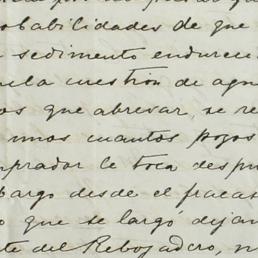 obabilidades de que
sedimento endureci
la cuestion de agu
os que abrevar, se re
unos cuantos pozos
mprador le toca despu
bargo desde el fracas
o que se largó dejan
te del Rebosadero, n